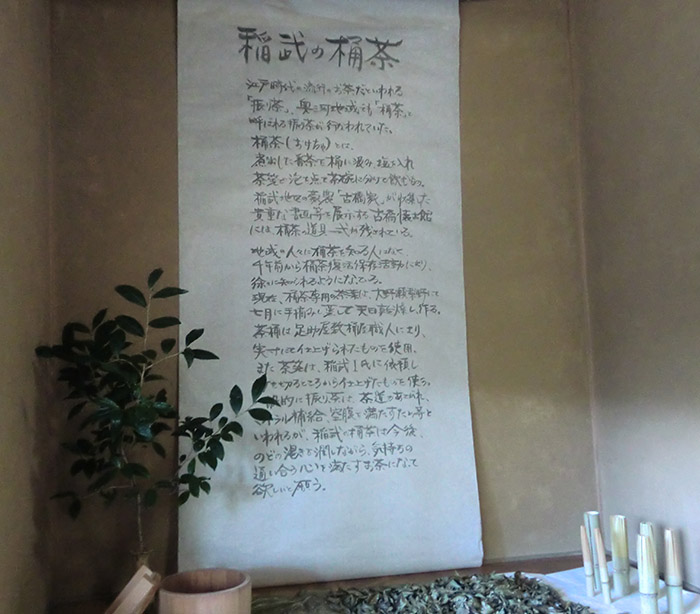 稲武の桶茶
江戸時代の流行のお茶だといわれる
「振り茶」、奥三河地域でも「桶茶」と
呼ばれる振り茶が行なわれていた。
桶茶（おけちゃ）とは、
煮出した番茶を桶に汲み、塩を入れ
茶筅で泡を点て茶碗に分けて飲むもの。
稲武地区の豪農「古橋家」が収集した
貴重な書画等を展示する古橋懐古館
には、桶茶の道具一式が残されている。
地域の人々に桶茶を知る人はなく
千年前から桶茶復活保存活動により、
徐々に知られるようになっている。
現在、桶茶専用の茶葉は、大野瀬有野にて
七月に手摘みし蒸して天日乾燥し、作る。
茶桶は足助屋敷桶屋職人により、
実寸にて仕上げられたものを使用、
また茶筅は、稲武Ｉ氏に依頼し
切るところから仕上げたものを使う。
的に振り茶は、茶道のあこがれ、
ラル補給、空腹を満たすため等と
いわれるが、稲武の桶茶は今後、
のどの渇きを潤しながら、気持ちの
通い合う心を満たすお茶になって
欲しいと願う。